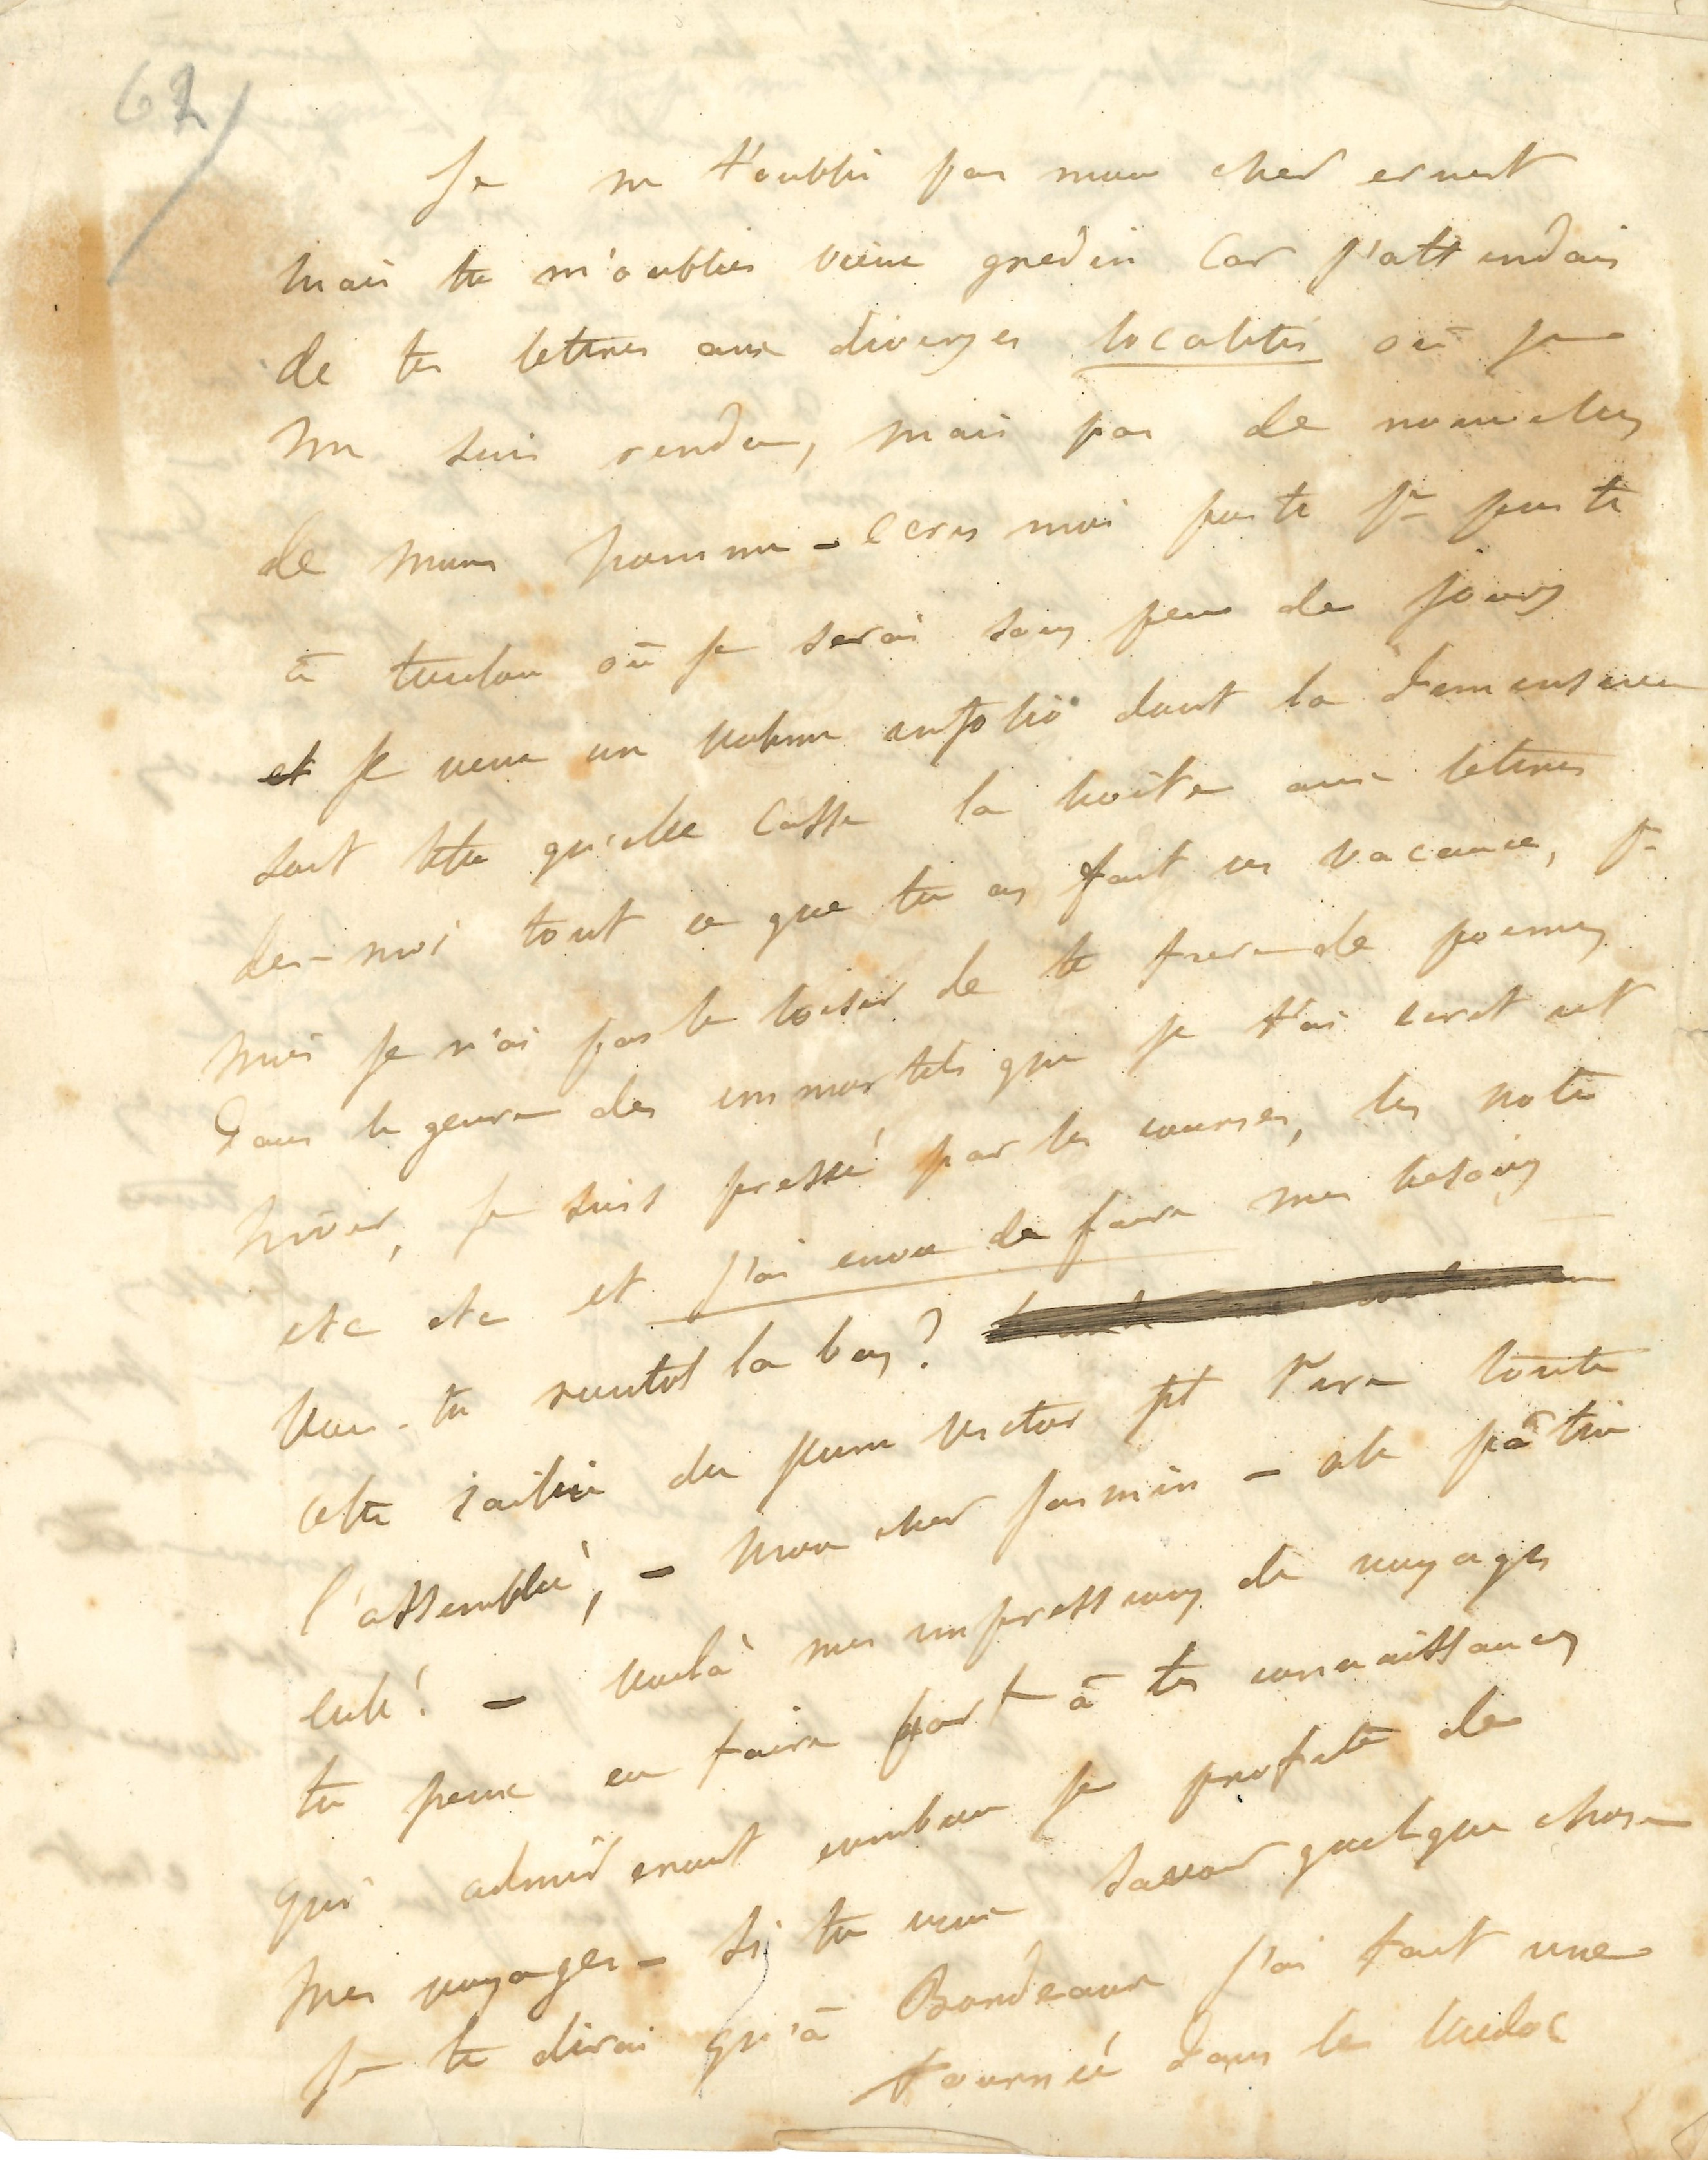 62/
Je ne t'oublie pas mon cher ernest
mais tu m'oublies vieux gredin car j'attendais
de tes lettres aux diverses localités où je
me suis rendu, mais pas de nouvelles
de mons homme – ecris moi poste pr poste
à toulon où je serai sous peu de jours
et je veux un volume infolio dont la dimension
soit telle qu'elle casse la boîte aux lettres
dis-moi tout ce que tu as fait ces vacances, pr
moi je n'ai pas le loisir de te faire de poemes
dans le genre des immortels que je t'ai ecrit cet
hiver, je suis pressé par les courses, les notes
etc etc et j'ai envie de faire mes besoins
vas-tu rentot la bas?
cette saillie du jeune victor fit rire toute
l'assemblée, – mon cher jasmin – ale pâtis
cuh! – voilà mes impressions de voyages
tu peux en faire part à tes connaissances
qui admireront combien je profite de
mes voyages – si tu veux savoir quelque chose
je te dirai qu'à Bordeaux j'ai fait une
tournée dans le medoc